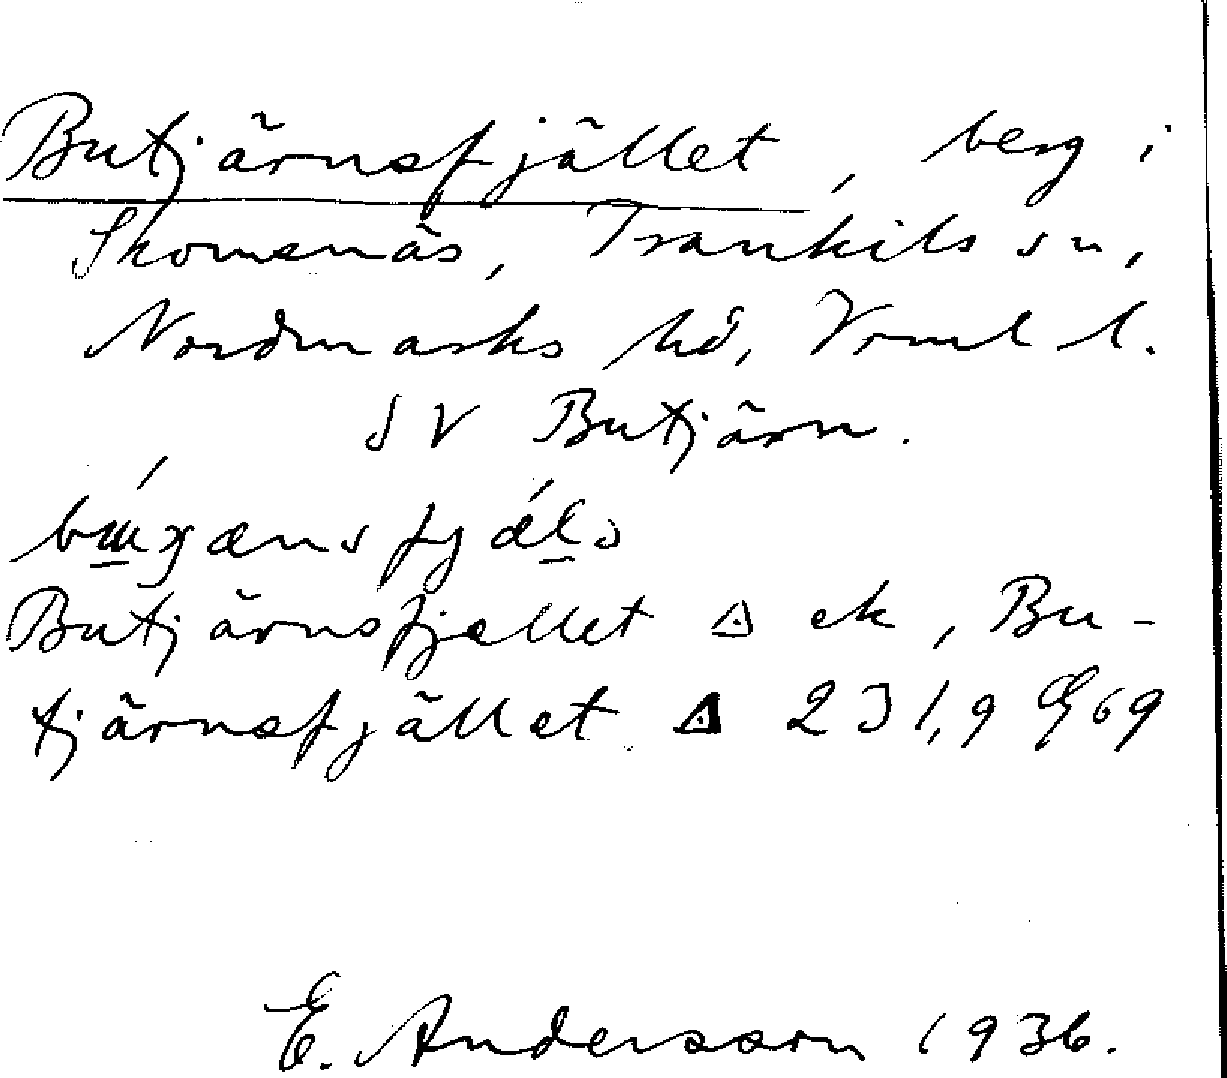 Butjärnsfjället, berg i
Skomenäs, Trankils sn,
Nordmarks hd, Vrml l.
SV Butjärn.
Butjärnsfjellet ◬ ek, Bu-
tjärnsfjället ◬ 231,9 G69
E. Andersson 1936.